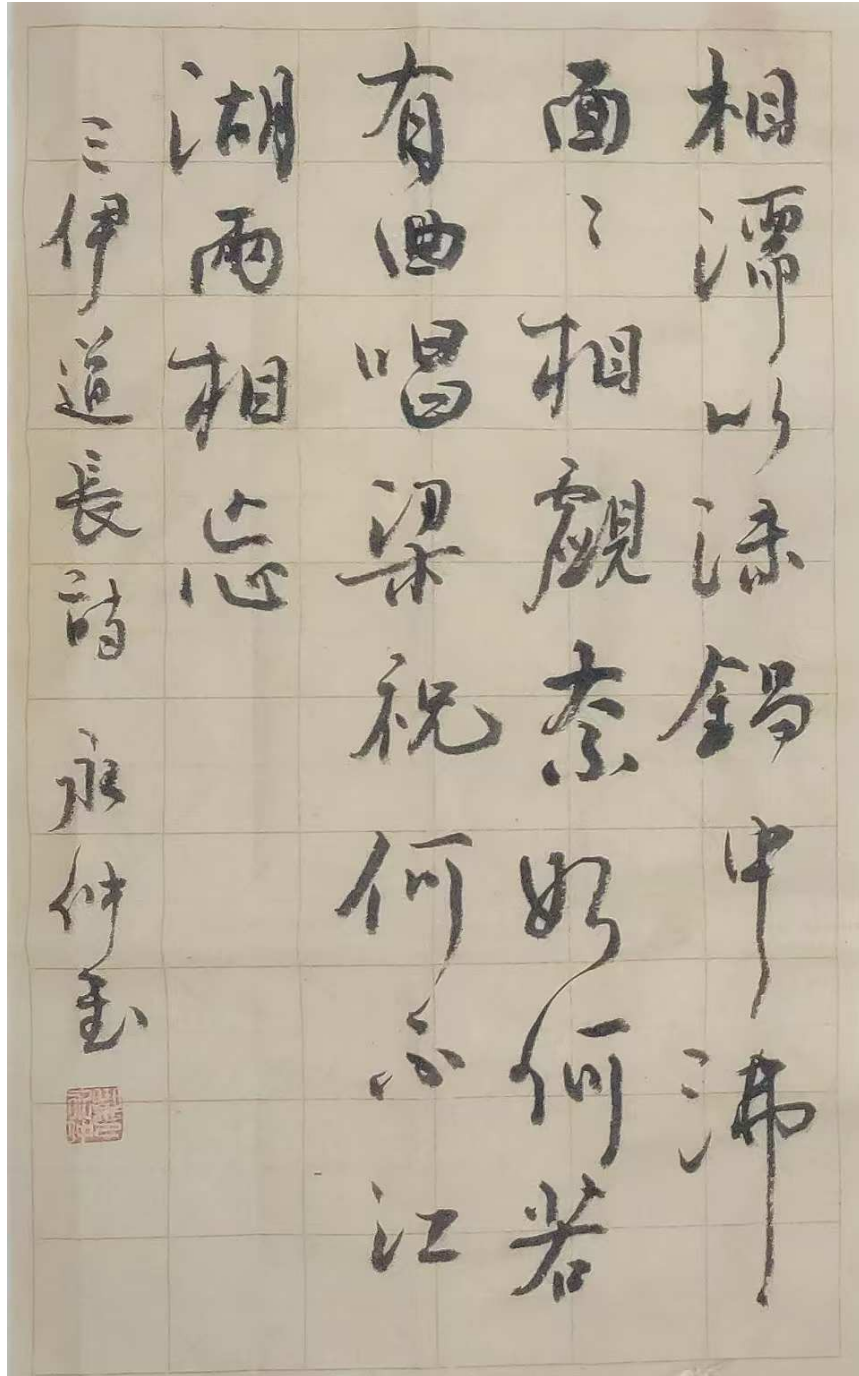 相濡以沫鍋中沸
面〻相覷奈如何若
有曲唱梁祝何不江
湖兩相忘
三伊道長詩 永仲書